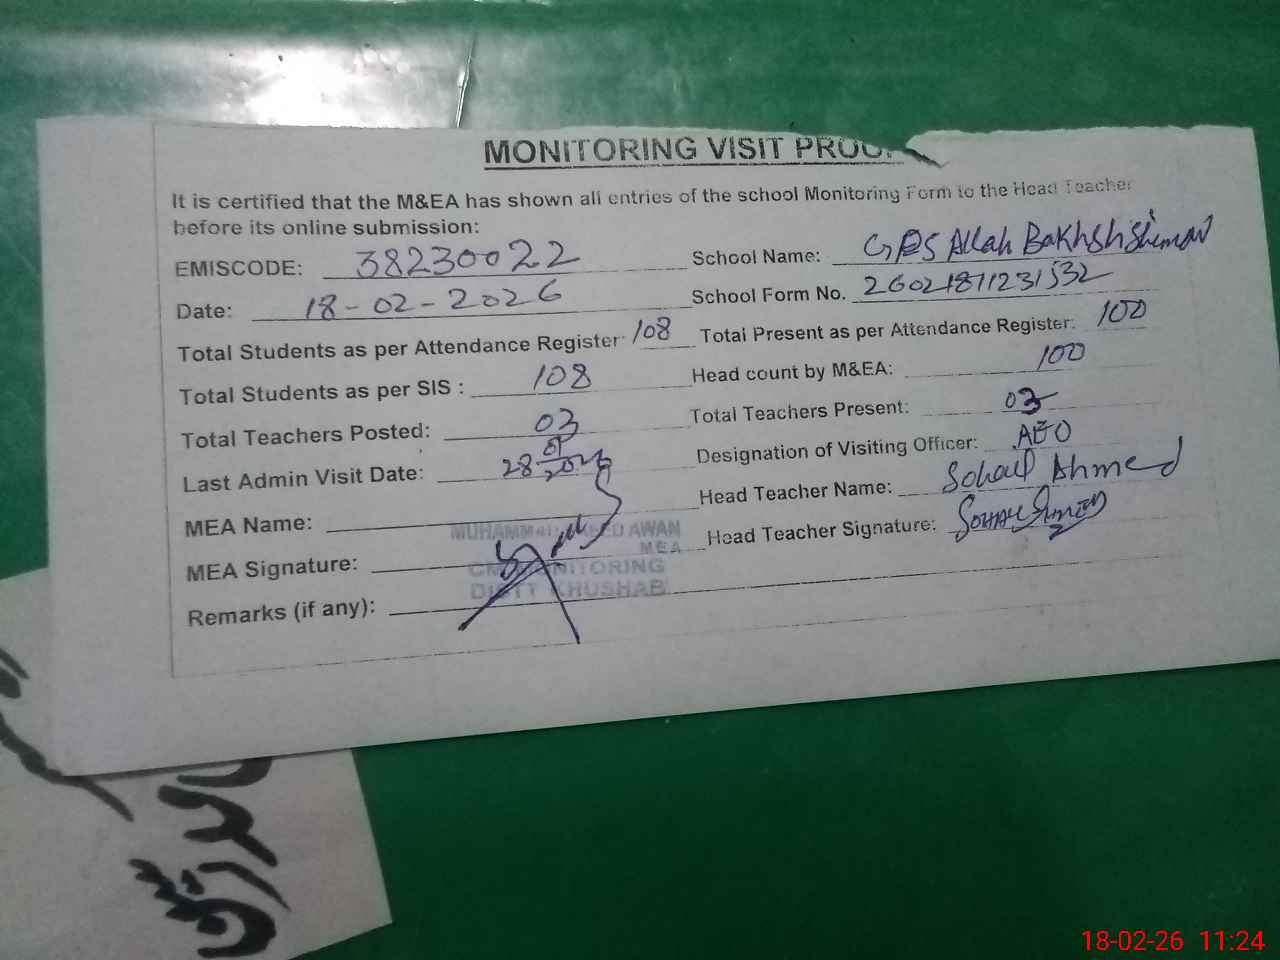 MONITORING VISIT PROOF
It is certified that the M&EA has shown all entries of the school Monitoring Form to the Head Teacher
before its online submission:
EMISCODE: 38230022 School Name: GPS Allah Bakhsh
Date: 18-02-2026 School Form No. 26021811231532
Total Students as per Attendance Register: 108 Total Present as per Attendance Register: 100
Total Students as per SIS : 108 Head count by M&EA: 100
Total Teachers Posted: 03 Total Teachers Present: 03
Last Admin Visit Date: 28 01 Designation of Visiting Officer: AEO
MEA Name: Head Teacher Name: Sohail Ahmed
MUHAMMAD AWAN
MEA
MEA Signature: Head Teacher Signature: Sohail Ahmed
CM MONITORING
DISTT KHUSHAB
Remarks (if any):
18-02-26 11:24